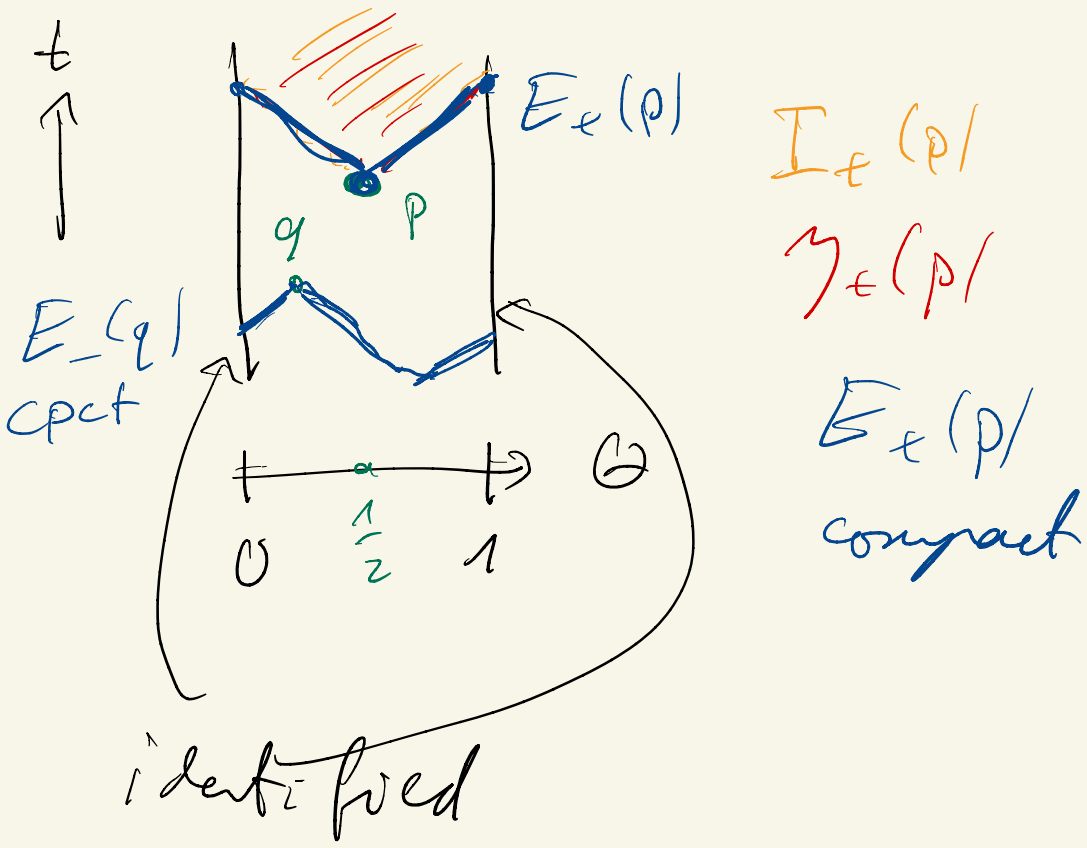 t
E_+(p)
I_+(p)
p
q
J_+(p)
E_-(q)
cpct
E_+(p)
compact
Θ
0
1/2
1
identified